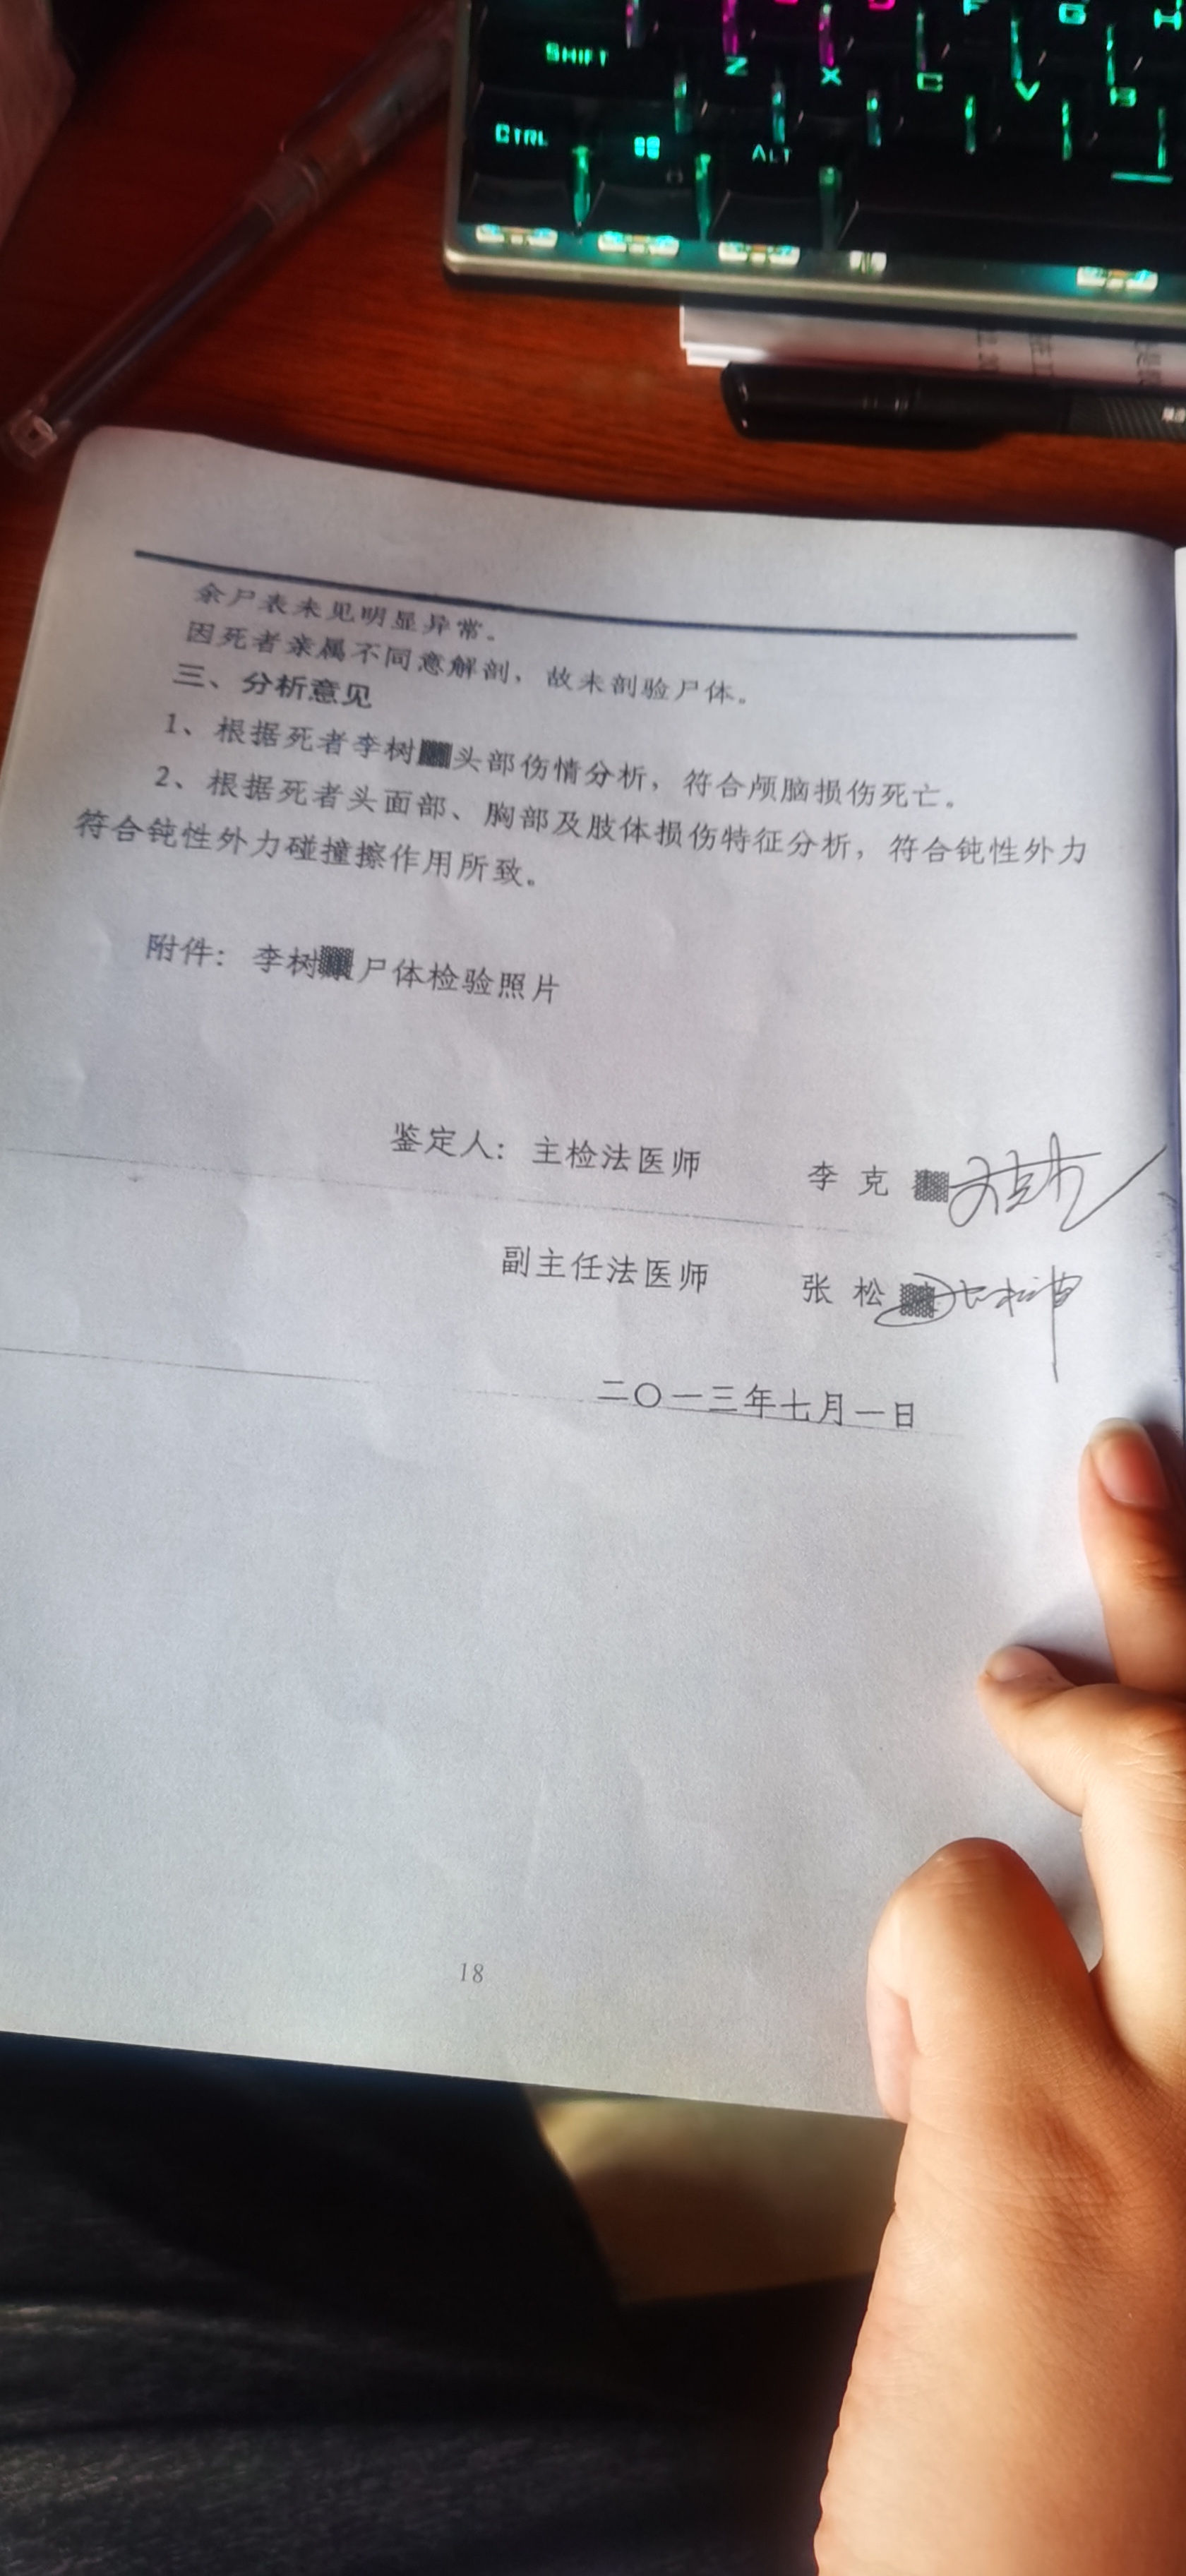 SHIFT
Z
X
C
V
B
F
G
H
CTRL
ALT
余尸表未见明显异常。
因死者亲属不同意解剖，故未剖验尸体。
三、分析意见
1、根据死者李树头部伤情分析，符合颅脑损伤死亡。
2、根据死者头面部、胸部及肢体损伤特征分析，符合钝性外力
符合钝性外力碰撞擦作用所致。
附件：李树尸体检验照片
鉴定人：主检法医师 李克
副主任法医师 张松
二〇一三年七月一日
18